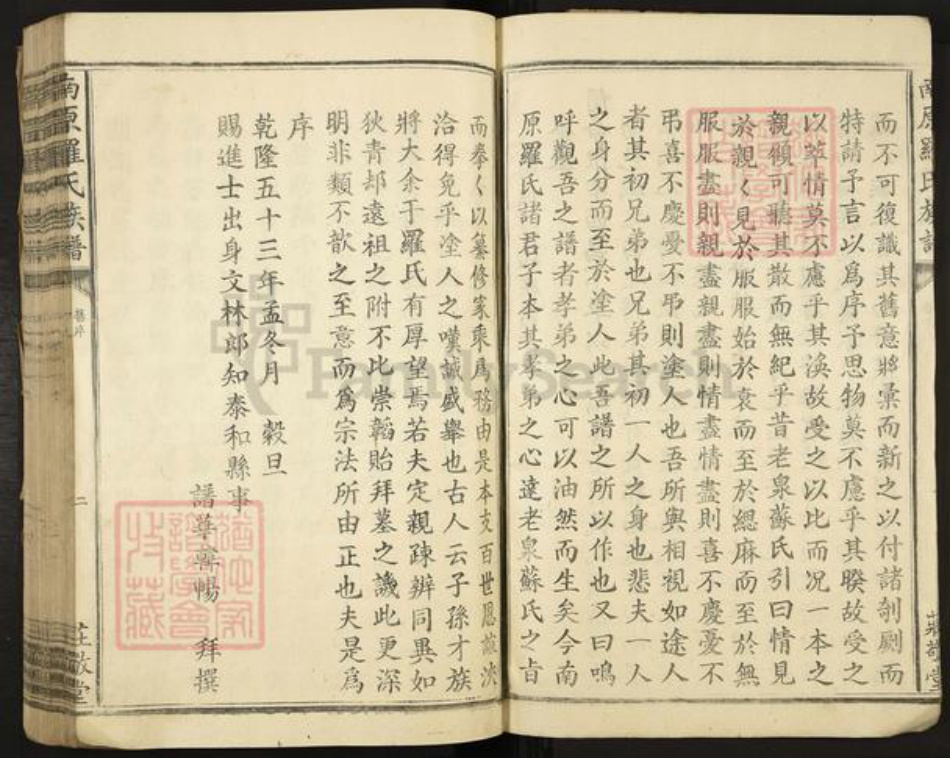 南原羅氏族譜
而不可復識其舊意將彙而新之以付諸剞劂而
特請予言以為序予思物莫不慮乎其睽故受之
以萃情莫不慮乎其渙故受之以比而况一本之
親顧可聽其散而無紀乎昔老泉蘇氏引曰情見
於親〱見於服服始於衰而至於緦麻而至於無
服服盡則親盡親盡則情盡情盡則喜不慶憂不
弔喜不慶憂不弔則塗人也吾所與相視如途人
者其初兄弟也兄弟其初一人之身也悲夫一人
之身分而至於塗人此吾譜之所以作也又曰嗚
呼觀吾之譜者孝弟之心可以油然而生矣今南
原羅氏諸君子本其孝弟之心遠老泉蘇氏之旨
莊敬堂
而拳〱以纂修家乘為務由是本支百世恩誼浹
洽得免乎塗人之嘆誠盛舉也古人云子孫才族
將大余于羅氏有厚望焉若夫定親疎辨同異如
狄青却遠祖之附不比崇韜貽拜墓之譏此更深
明非類不歆之至意而為宗法所由正也夫是為
序
乾隆五十三年孟冬月 穀旦
賜進士出身文林郎知泰和縣事
譜華 暢 拜撰
南原羅氏族譜
舊序
二
莊敬堂
FamilySearch